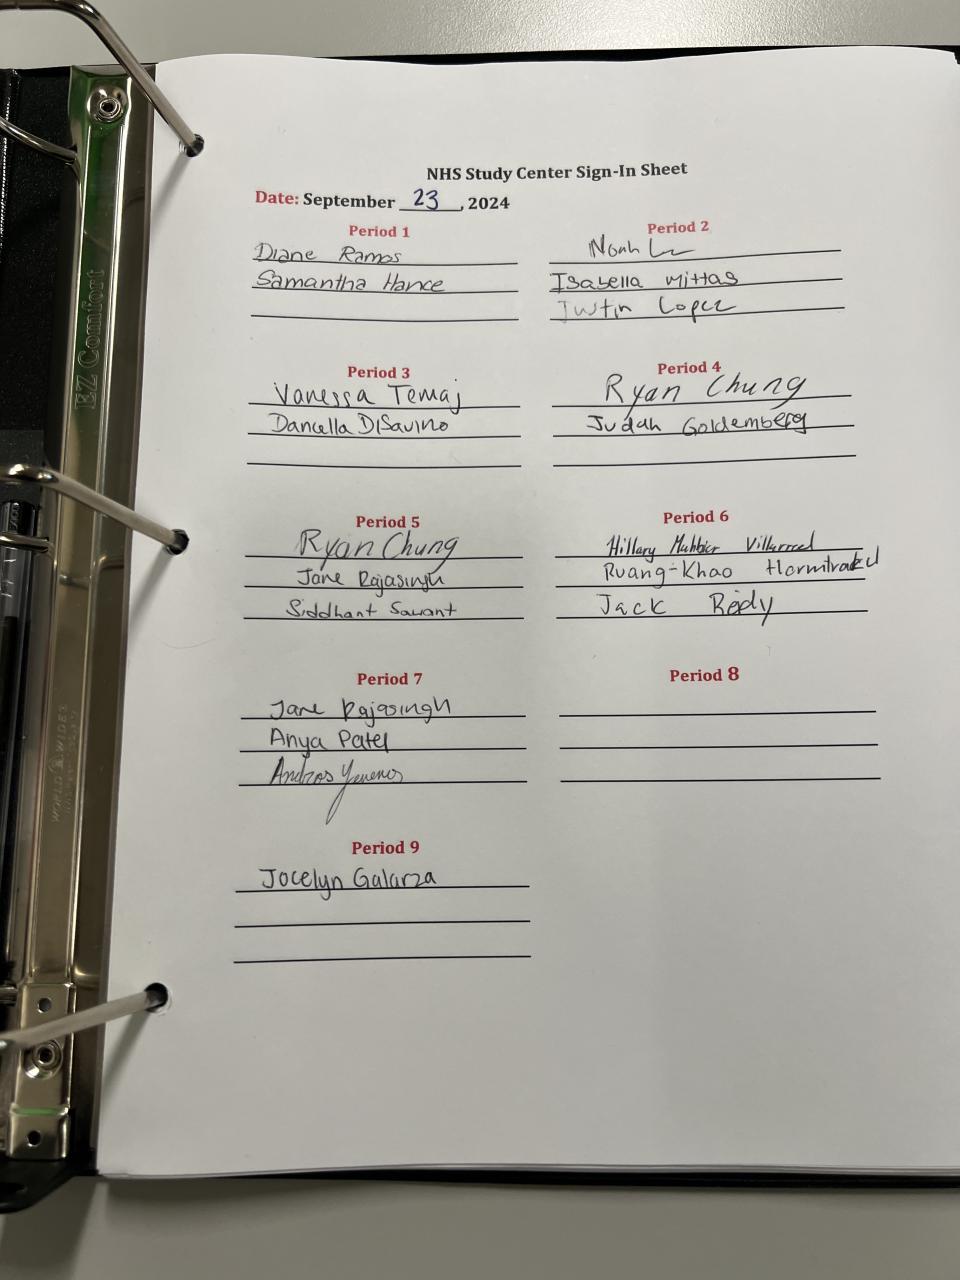 EZ Comfort
WORLD WIDE
NHS Study Center Sign-In Sheet
Date: September 23, 2024
Period 1
Diane Ramos
Samantha Hance
Period 2
Noah
Isabella Mittas
Justin Lopez
Period 3
Vanessa Temaj
Daniella DiSavino
Period 4
Ryan Chung
Judah Goldemberg
Period 5
Ryan Chung
Jane Rajasingh
Siddhant Sawant
Period 6
Hillary Villarreal
Ruang-Khao
Jack Reidy
Period 7
Jane Rajasingh
Anya Patel
Andros
Period 8
Period 9
Jocelyn Galarza